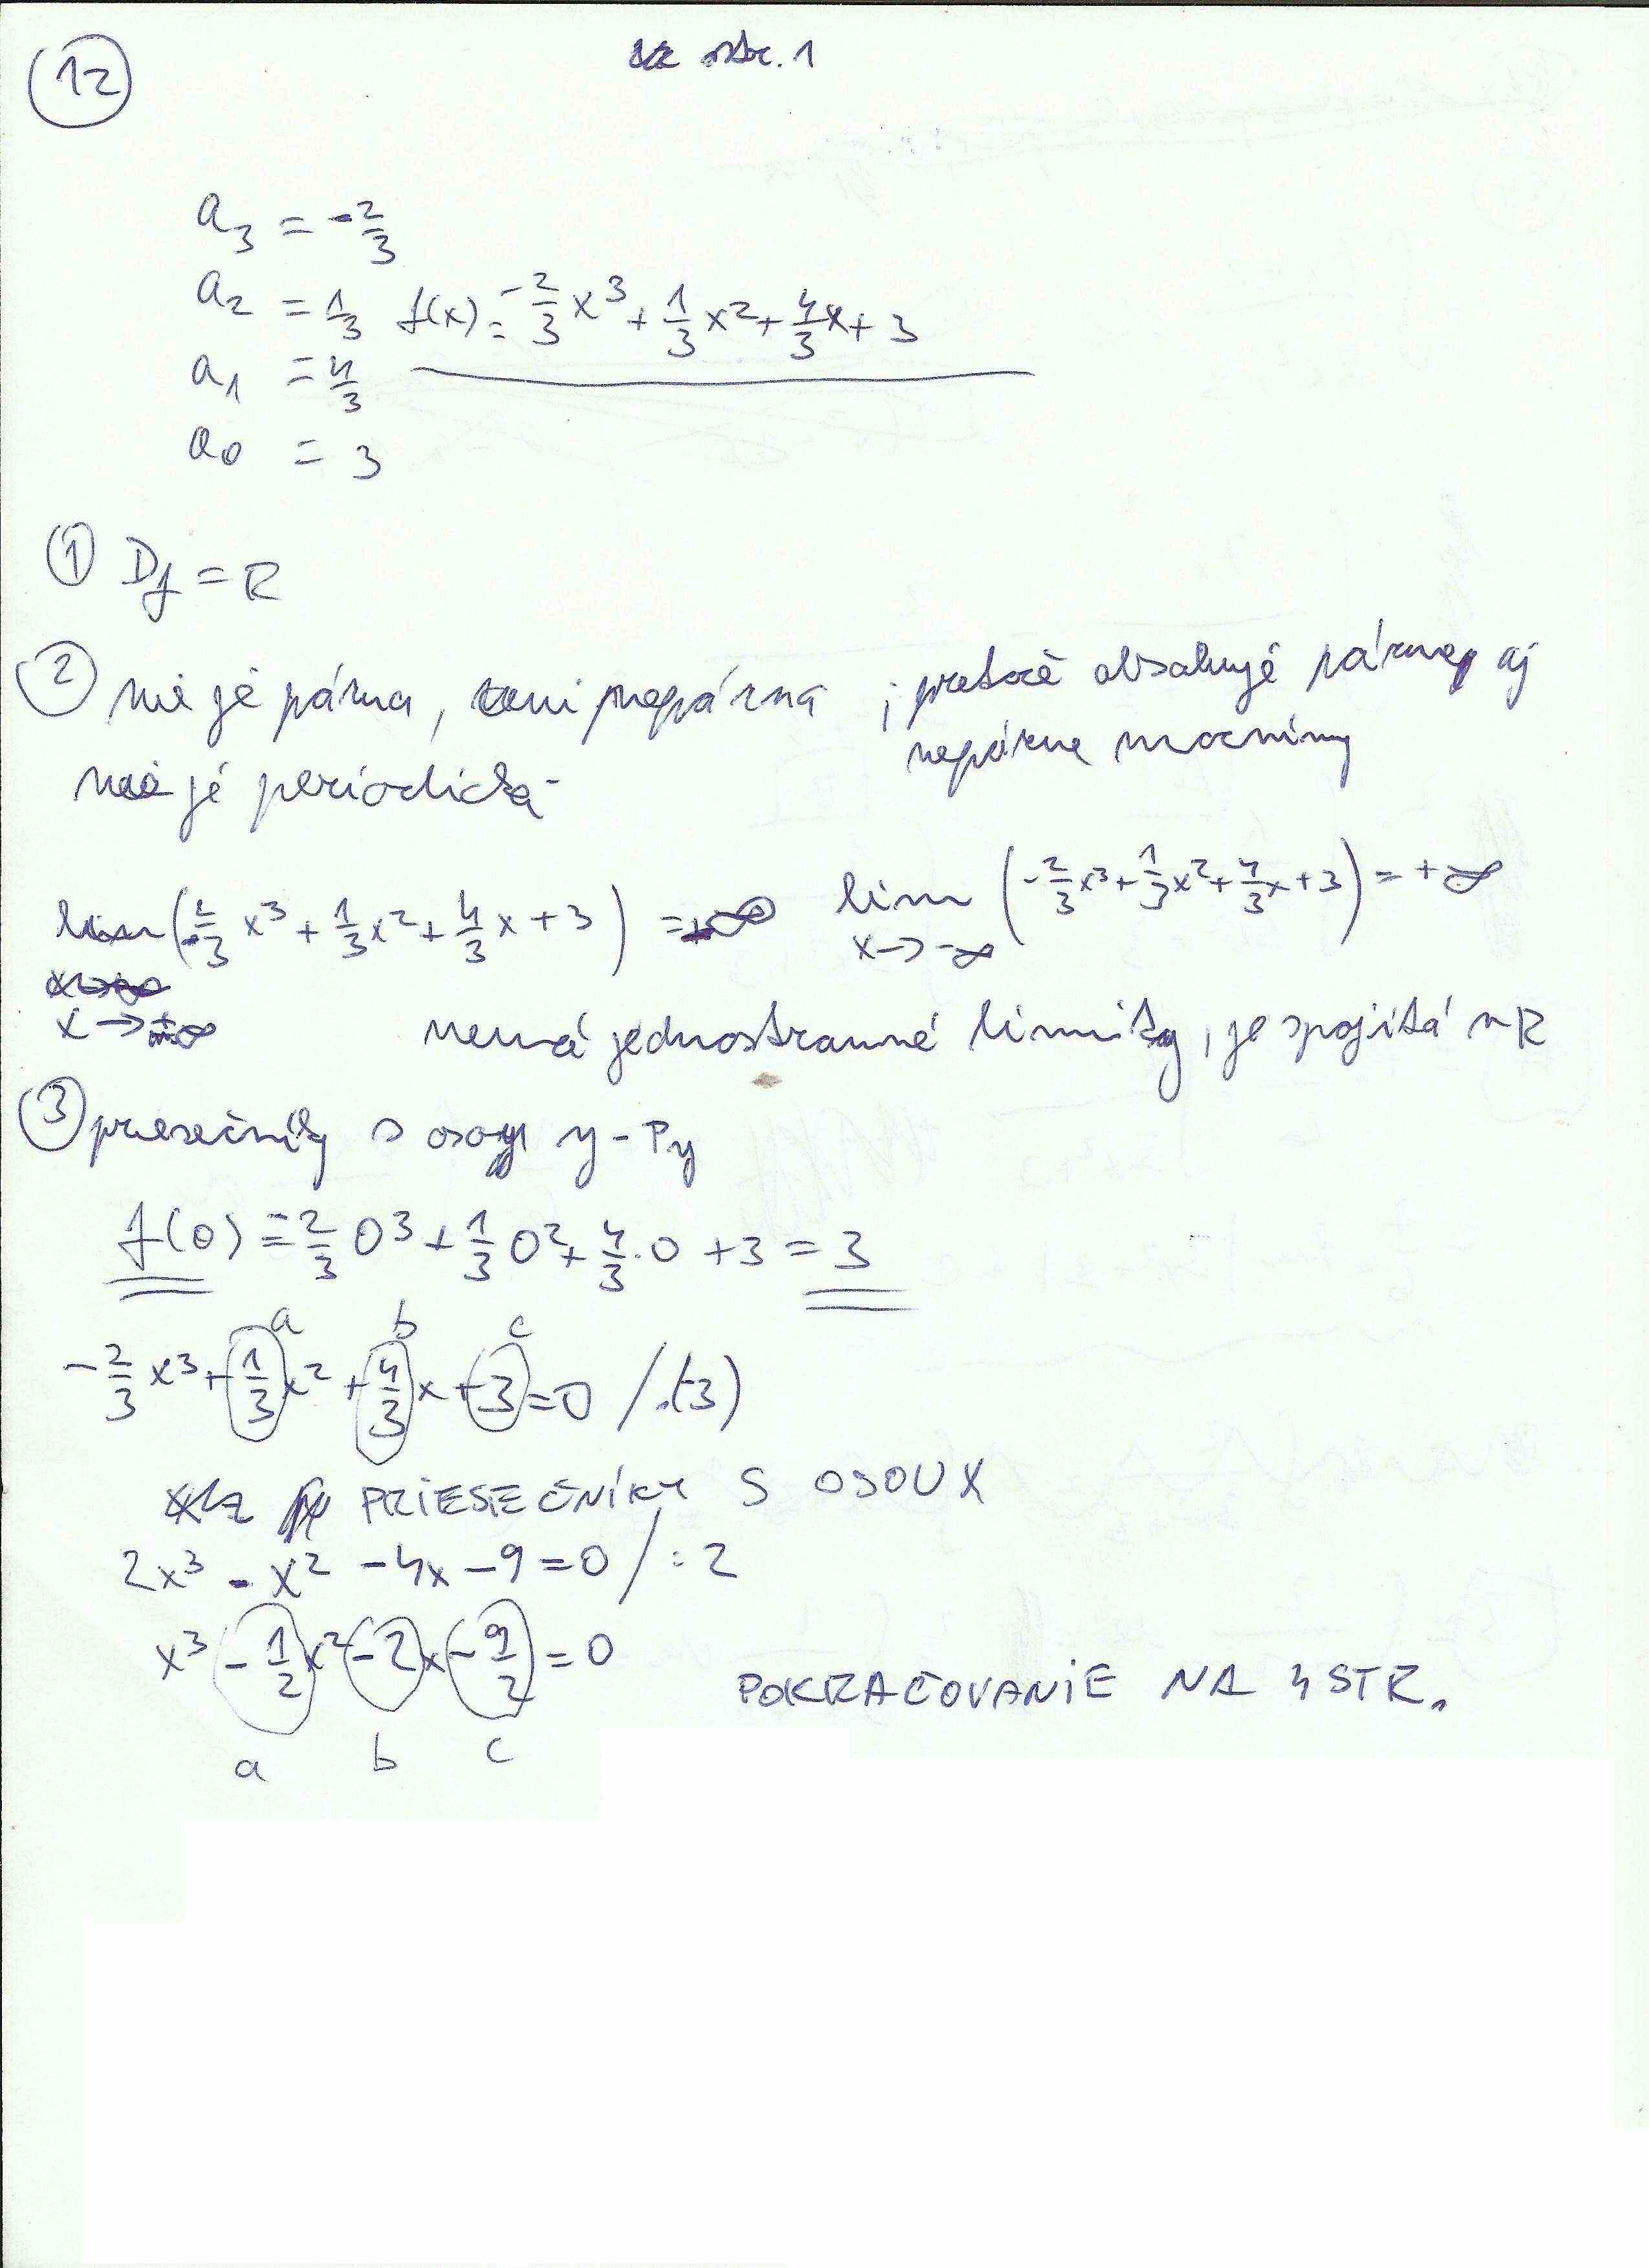 12
str. 1
a₃ = -2/3
a₂ = 1/3 f(x) = -2/3 x³ + 1/3 x² + 4/3 x + 3
a₁ = 4/3
a₀ = 3
① Df = R
② nie je párna, ani nepárna, pretože obsahuje párne aj
nepárne mocniny
nie je periodická
lim (-2/3 x³ + 1/3 x² + 4/3 x + 3) = -∞ lim (-2/3 x³ + 1/3 x² + 4/3 x + 3) = +∞
x → +∞ x → -∞
nemá jednostranné limity, je spojitá v R
③ priesečníky s osou y - Py
f(0) = -2/3 0³ + 1/3 0² + 4/3 · 0 + 3 = 3
a b c
-2/3 x³ + 1/3 x² + 4/3 x + 3 = 0 / .(-3)
PRIESEČNÍKY S OSOU X
2x³ - x² - 4x - 9 = 0 / : 2
x³ - 1/2 x² - 2x - 9/2 = 0
a b c
POKRAČOVANIE NA 4 STR.